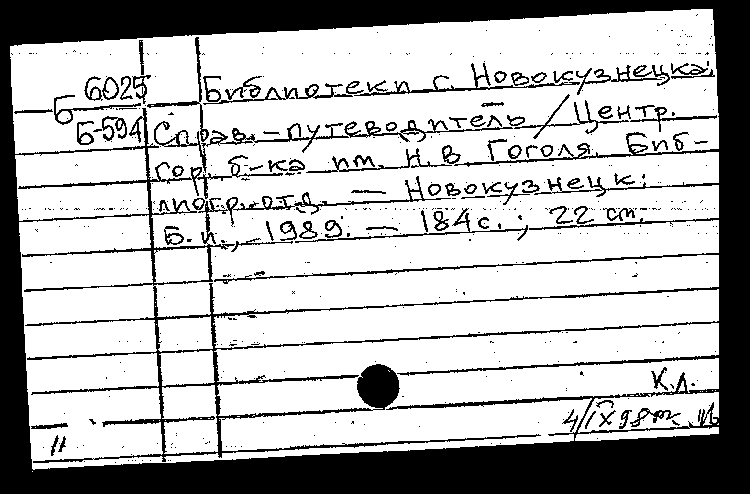 Б 6025
Б-594
Библиотеки г. Новокузнецка:
Справ.-путеводитель / Центр.
гор. б-ка им. Н.В. Гоголя. Биб-
лиогр. отд. — Новокузнецк:
Б.и., 1989. — 184 с.; 22 см.
К.Л.
4/IX 98
11